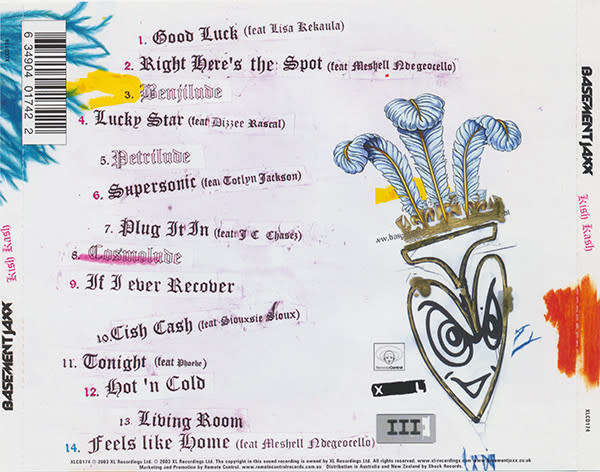 XLCD174
6 34904 01742 2
1. Good Luck (feat Lisa Kekaula)
2. Right Here's the Spot (feat Meshell Ndegeocello)
3. Benjilude
4. Lucky Star (feat Dizzee Rascal)
5. Petrilude
6. Supersonic (feat Totlyn Jackson)
7. Plug It In (feat J C Chasez)
8. Cosmolude
9. If I ever Recover
10. Cish Cash (feat Siouxsie Sioux)
11. Tonight (feat Phoebe)
12. Hot 'n Cold
13. Living Room
14. Feels like Home (feat Meshell Ndegeocello)
Kish Kash
BASEMENT JAXX
BASEMENT JAXX
Kish Kash
XLCD174
RemoteControl
X L
III
XLCD174 ℗ 2003 XL Recordings Ltd. © 2003 XL Recordings Ltd. The copyright in this sound recording is owned by XL Recordings Ltd. All rights reserved. www.xl-recordings.com www.basementjaxx.co.uk
Marketing and Promotion by Remote Control. www.remotecontrolrecords.com.au Distribution in Australia and New Zealand by Shock Records.